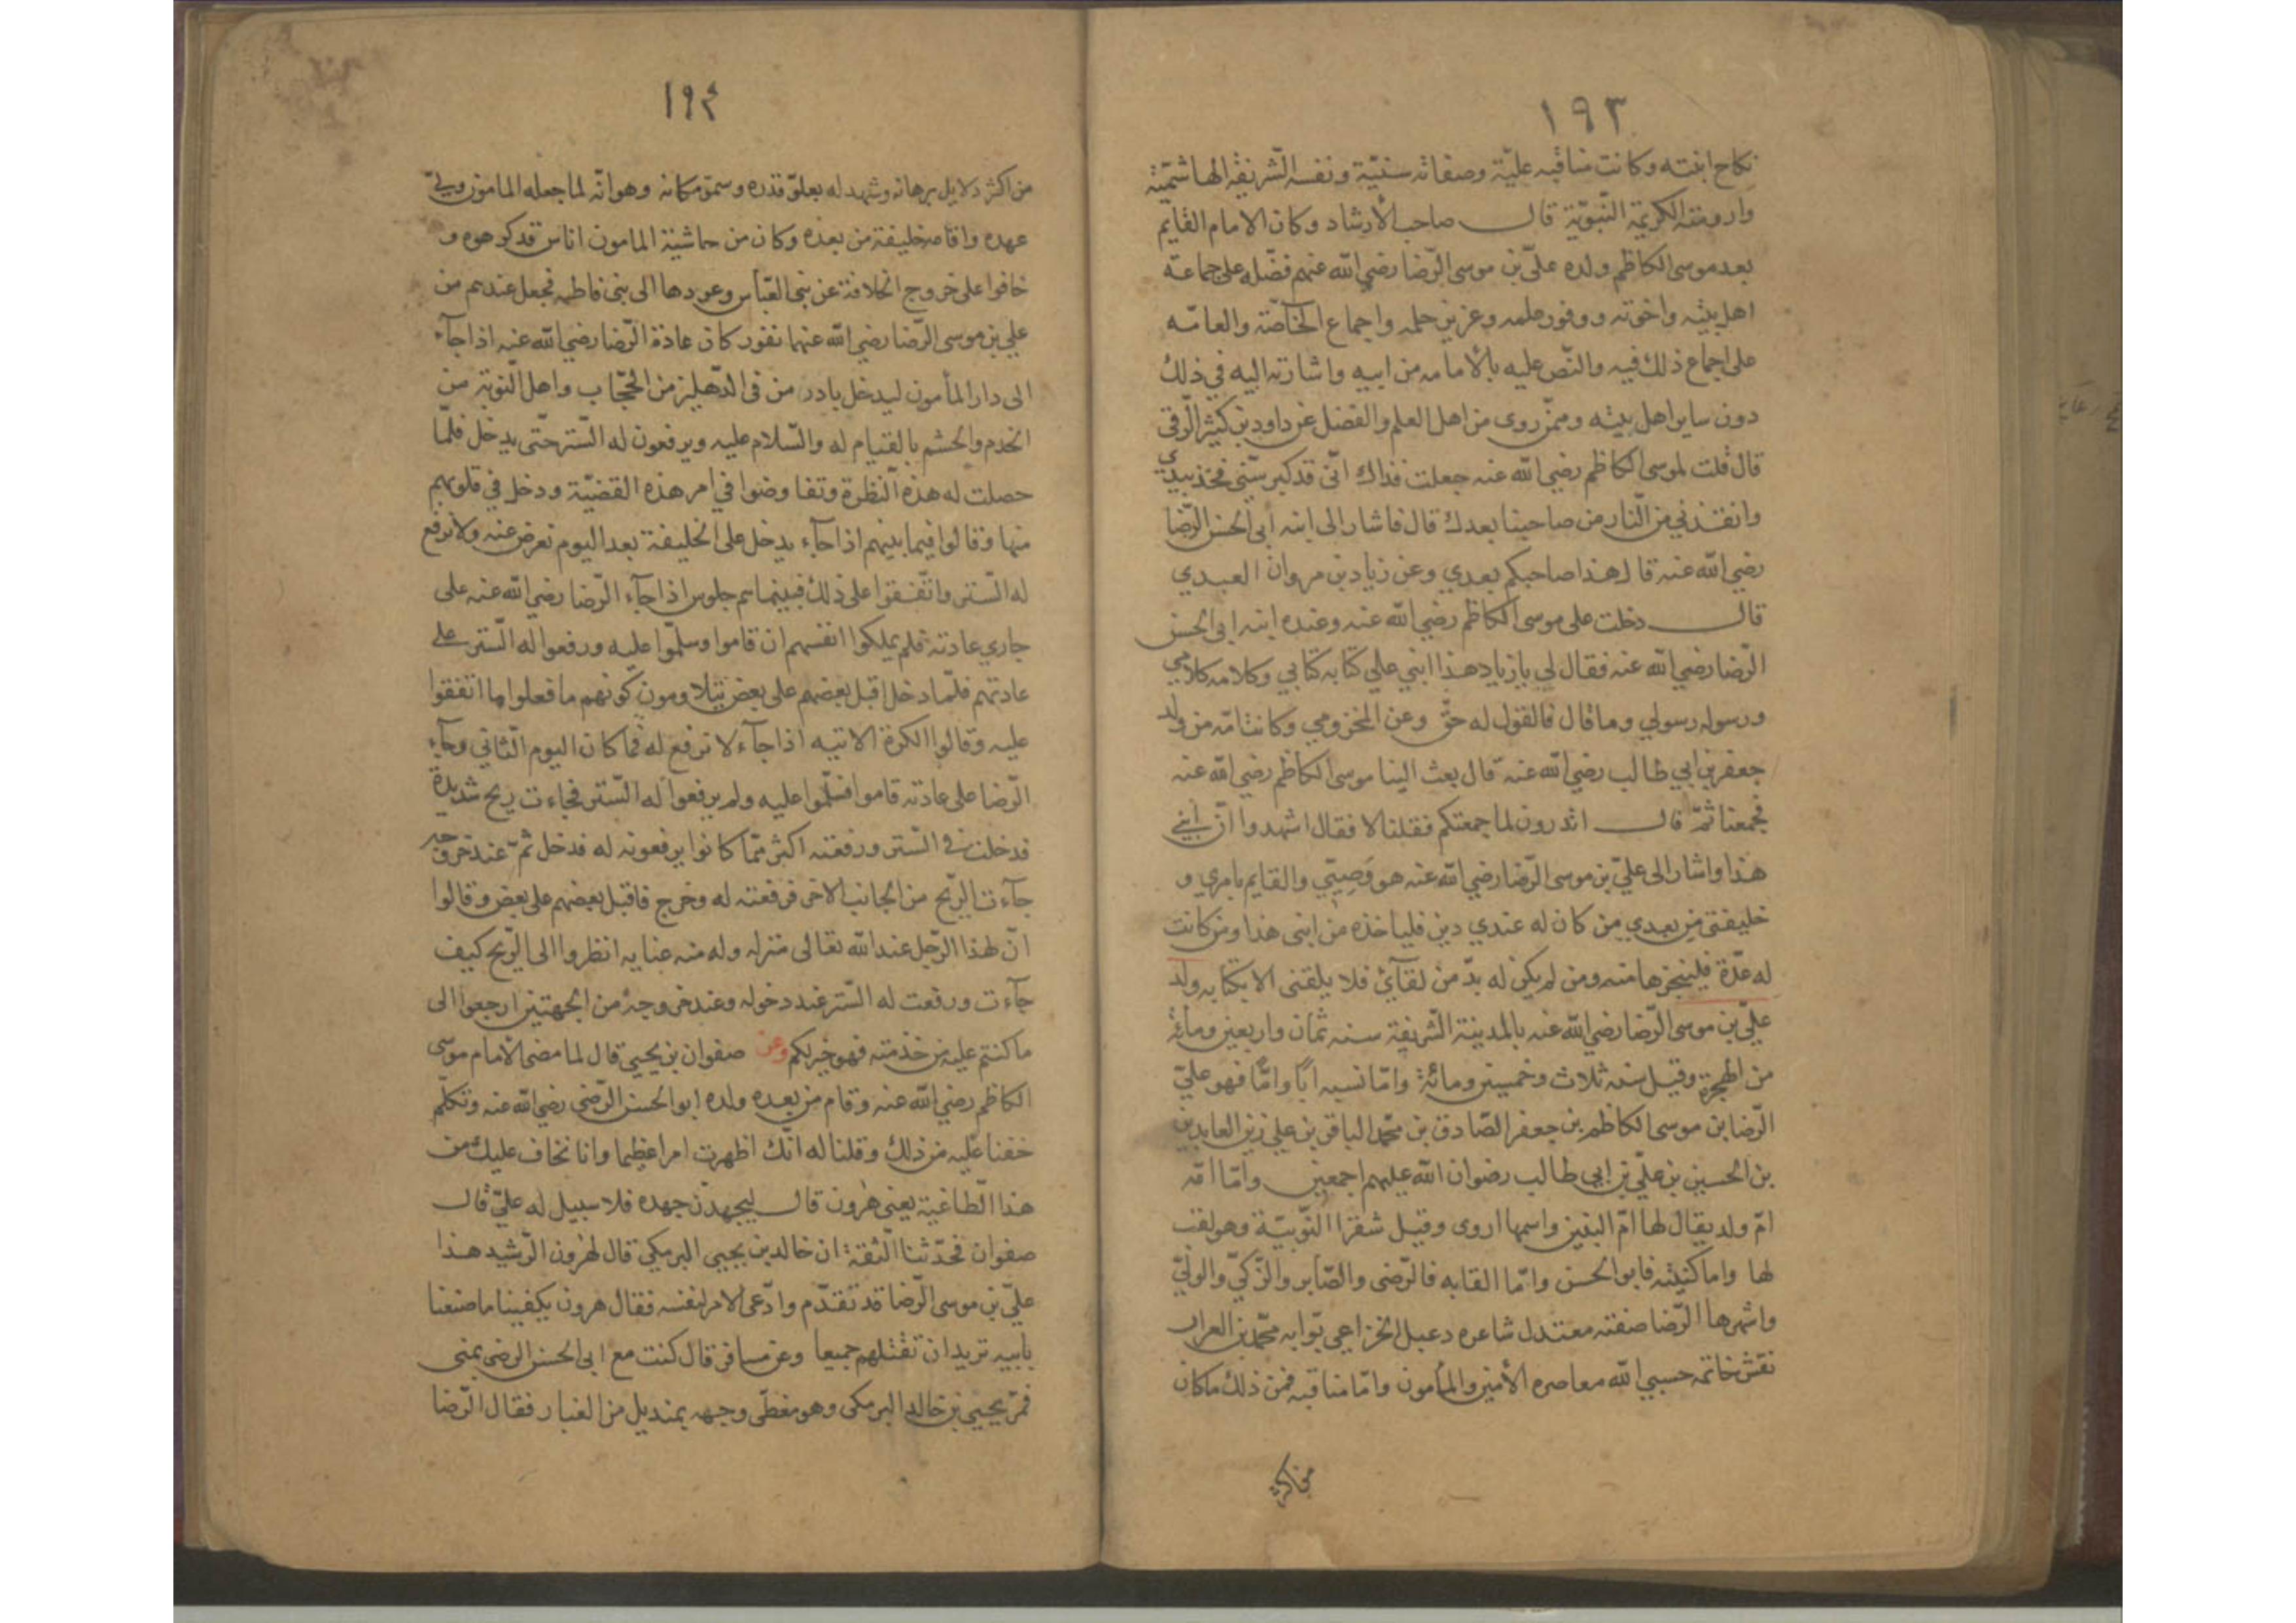 ١٩٣
نكاح ابنته وكانت مناقبه عليّة وصفاته سنيّة ونفسه الشريفة الهاشميّة
وارومته الكريمة النبويّة قال صاحب الأرشاد وكان الامام القايم
بعد موسى الكاظم ولده علىّ بن موسى الرّضا رضي الله عنهم فضّله على جماعة
اهل بيته واخوته ووفور علمه وغزير حلمه واجماع الخاصّة والعامّه
على اجماع ذلك فيه والنّص عليه بالأمامه من ابيه واشارته اليه في ذلك
دون ساير اهل بيته وممّن روى من اهل العلم والفضل عن داود بن كثير الرّقى
قال قلت لموسى الكاظم رضي الله عنه جعلت فداك انّى قد كبر سنّى فخذ بيدي
وانقذني من النّار من صاحبنا بعدك قال فاشار الى ابنه أبى الحسن الرّضا
رضي الله عنه قال هذا صاحبكم بعدي وعن زياد بن مروان العبدي
قال دخلت على موسى الكاظم رضي الله عنه وعنده ابنه ابى الحسن
الرّضا رضي الله عنه فقال لي يا زياد هذا ابني علي كتابه كتابي وكلامه كلامي
ورسوله رسولي وما قال فالقول له حقّ وعن المخزومي وكانت امّه من ولد
جعفر بن ابي طالب رضي الله عنه قال بعث الينا موسى الكاظم رضي الله عنه
فجمعنا ثمّ قال اتدرون لما جمعتكم فقلنا لا فقال اشهدوا انّ ابني
هذا واشار الى عليّ بن موسى الرّضا رضي الله عنه هو وَصِيّي والقايم بامري و
خليفتى من بعدي من كان له عندي دين فلياخذه من ابنى هذا ومن كانت
له عدّة فلينجزها منه ومن لم يكن له بدّ من لقآئي فلا يلقنى الا بكتابه ولد
عليّ بن موسى الرّضا رضي الله عنه بالمدينة الشّريفة سنه ثمان واربعين ومائة
من الهجرة وقيل سنه ثلاث وخمسين ومائة وامّا نسبه ابًا وامًّا فهو عليّ
الرّضا بن موسى الكاظم بن جعفر الصّادق بن محمّد الباقر بن علي زين العابدين
بن الحسين بن عليّ بن ابي طالب رضوان الله عليهم اجمعين وامّا امّه
امّ ولد يقال لها امّ البنين واسمها اروى وقيل شقرا النّوبيّة وهو لقب
لها واما كنيته فابو الحسن وامّا القابه فالرّضى والصّابر والزّكيّ والوليّ
واشهرها الرّضا صفته معتدل شاعره دعبل الخزاعي بوّابه محمّد بن الفرات
نقش خاتمه حسبي الله معاصره الأمين والمأمون وامّا مناقبه فمن ذلك ما كان
من اكثر
١٩٤
من اكثر دلايل برهانه وشهد له بعلوّ قدره وسموّ مكانه وهو انّه لما جعله المامون وليّ
عهده واقامه خليفة من بعده وكان من حاشية المامون اناس قد كرهوه و
خافوا على خروج الخلافة عن بنى العبّاس وعودها الى بنى فاطمه فجعل عندهم من
علي بن موسى الرّضا رضي الله عنهما نفور كان عادة الرّضا رضي الله عنه اذا جآء
الى دار المأمون ليدخل بادر من فى الدّهليز من الحجّاب واهل النّوبة من
الخدم والحشم بالقيام له والسّلام عليه ويرفعون له السّتر حتّى يدخل فلمّا
حصلت له هذه النّظرة وتفاوضوا في امر هذه القضيّة ودخل في قلوبهم
منها وقالوا فيما بينهم اذا جآء يدخل على الخليفة بعد اليوم نعرض عنه ولا نرفع
له السّتر واتّفقوا على ذلك فبينما هم جلوس اذا جآء الرّضا رضي الله عنه على
جاري عادته فلم يملكوا انفسهم ان قاموا وسلّموا عليه ورفعوا له السّتر على
عادتهم فلمّا دخل اقبل بعضهم على بعض يتلاومون كونهم ما فعلوا ما اتفقوا
عليه وقالوا الكرة الاتيه اذا جآء لا نرفع له فما كان اليوم الثّاني وجآء
الرّضا على عادته قاموا فسلّموا عليه ولم يرفعوا له السّتر فجاءت ريح شديدة
فدخلت في السّتر ورفعته اكثر ممّا كانوا يرفعونه له فدخل ثمّ عند خروجه
جآءت الرّيح من الجانب الاخر فرفعته له وخرج فاقبل بعضهم على بعض وقالوا
انّ لهذا الرّجل عند الله تعالى منزله وله منه عنايه انظروا الى الرّيح كيف
جآءت ورفعت له السّتر عند دخوله وعند خروجه من الجهتين ارجعوا الى
ما كنتم عليه من خدمته فهو خير لكم وعن صفوان بن يحيى قال لما مضى الأمام موسى
الكاظم رضي الله عنه وقام من بعده ولده ابو الحسن الرّضى رضي الله عنه وتكلّم
خفنا عليه من ذلك وقلنا له انّك اظهرت امرا عظيما وانا نخاف عليك من
هذا الطّاغية يعنى هٰرون قال ليجهدنّ جهده فلا سبيل له عليّ قال
صفوان فحدّثنا الثّقة ان خالد بن يحيى البرمكي قال لهٰرون الرّشيد هذا
عليّ بن موسى الرّضا قد تقدّم وادّعى الامر لنفسه فقال هرون يكفينا ما صنعنا
بابيه تريد ان تقتلهم جميعا وعن مسافر قال كنت مع ابى الحسن الرضى بمنى
فمرّ يحيى بن خالد البرمكى وهو مغطّى وجهه بمنديل من الغبار فقال الرّضا